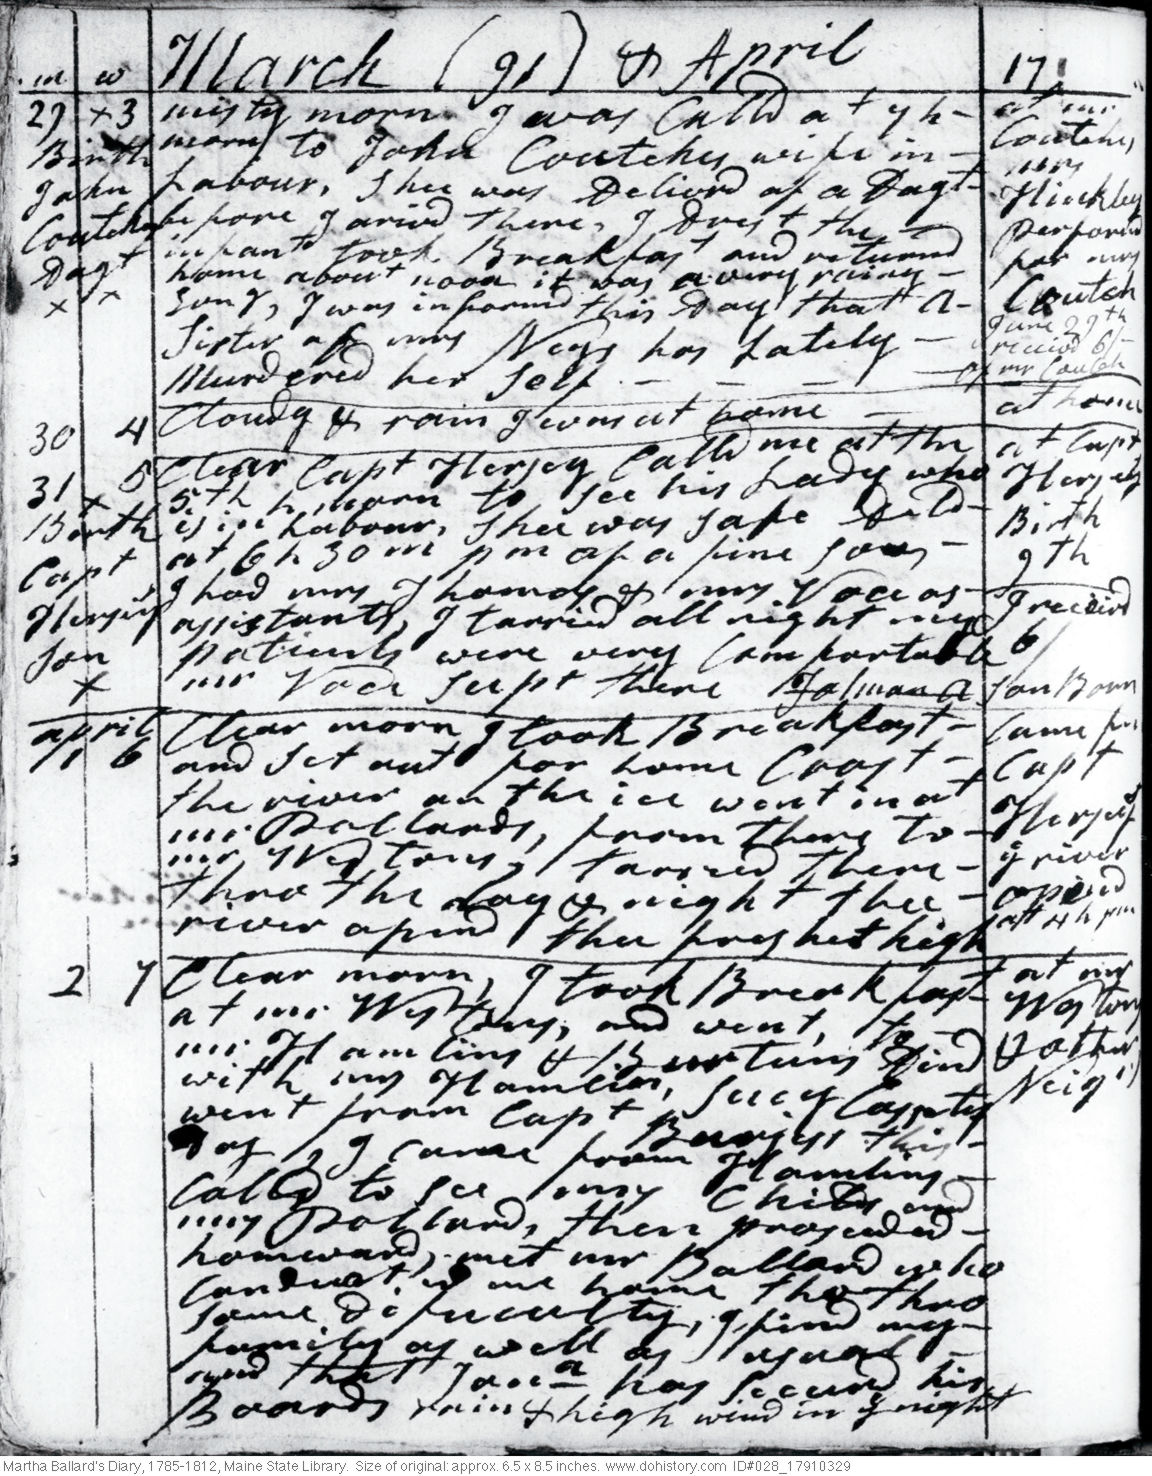 m w March (91) & April 17
29 x 3 misty morn I was Calld at 7 h
Birth morn to John Coutches wife in
John Labour. Shee was Deliverd of a Dagt
Coutches before I arivd there, I Drest the
Dagt infant took Breakfast and returnd
x x home about noon it was a very rainy
I was informd this Day that a
Sister of mrs Neys has Lately
Murdered her Self
at mr
Coutches
mrs
Hinkley
Performd
for mrs
Coutch
June 29th
receivd 6/
of mr Coutch
30 4 Cloudy & rain I was at home
at home
31 x 5 Clear Capt Hersey Calld me at the
Birth 5th h morn to see his Lady who
Capt is in Labour, Shee was safe Deld
Herseys at 6 h 30 m pm of a fine son
Son I had mrs Thomas & mrs Voce as
x assistants, I tarried all night my
patients were very Comfortable
mr Voce sleept there
at Capt
Herseys
Birth
9th
I receivd
6/
son Born
april
1 6 Clear morn I took Breakfast
and set out for home Crost
the river on the ice went in at
mr Pollards, from there to
mr Westons, tarried there
thro the Day & night thee
river opind thee freshet high
Came from
Capt
Herseys
ye river
opined
at 4 h pm
2 7 Clear morn, I took Breakfast
at mr Westons, and went, to
mr Hamlins & Burtuns Dind
with mrs Hamlin,
went from Capt Burjess this
Day, I came from Hamlins
Calld to see my Childn and
mrs Pollard, then proseeded
homeward, met mr Ballard who
Conduct'd me home tho thro
some dificculty, I find my
family as well as usual
and that Jona has secured his
Boards rain & high wind in ye night
at mr
Westons
& other
Neigrs
Martha Ballard's Diary, 1785-1812, Maine State Library. Size of original: approx. 6.5 x 8.5 inches. www.dohistory.com ID#028_17910329